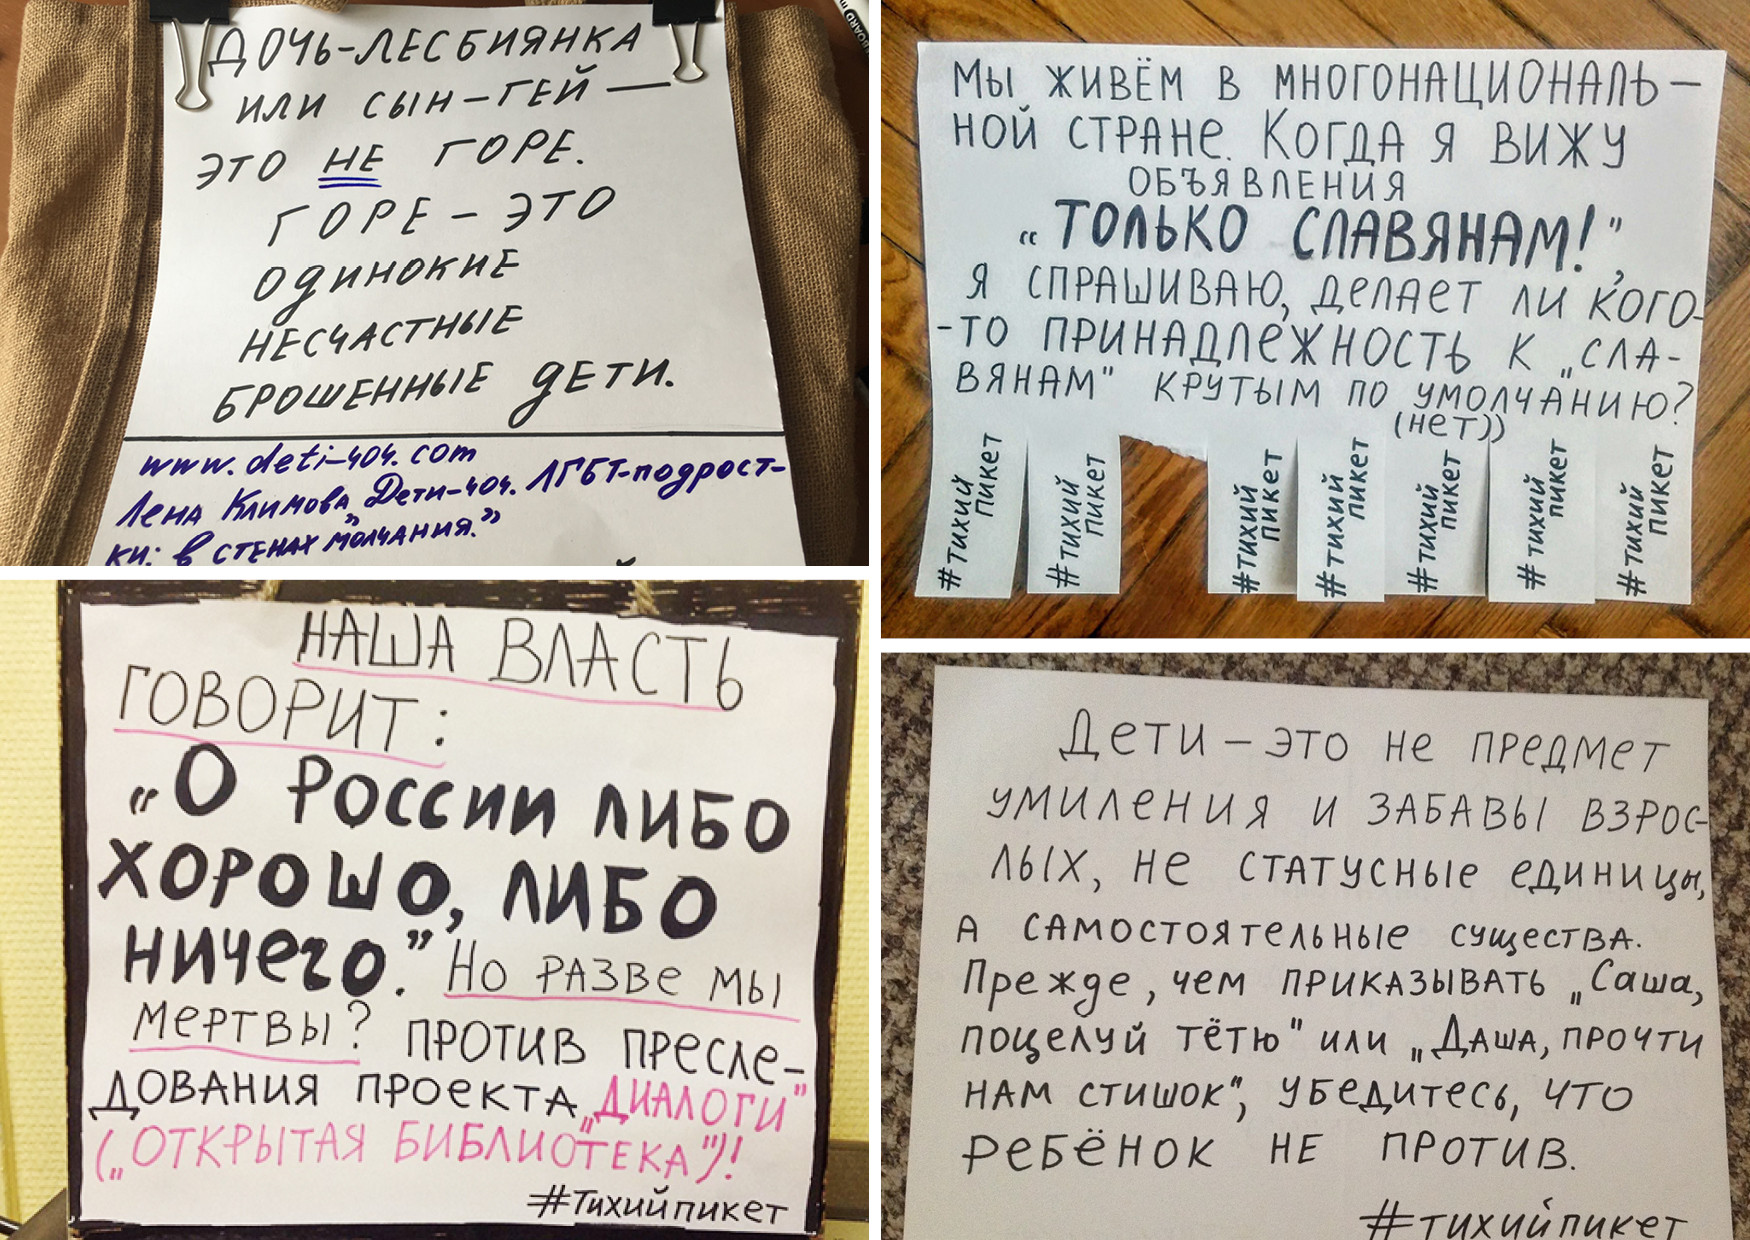 ДОЧЬ-ЛЕСБИЯНКА
ИЛИ СЫН-ГЕЙ —
ЭТО НЕ ГОРЕ.
ГОРЕ - ЭТО
ОДИНОКИЕ
НЕСЧАСТНЫЕ
БРОШЕННЫЕ ДЕТИ.
www.deti-404.com
Лена Климова „Дети-404. ЛГБТ-подрост-
ки: в стенах молчания.”
МЫ ЖИВЁМ В МНОГОНАЦИОНАЛЬ-
НОЙ СТРАНЕ. КОГДА Я ВИЖУ
ОБЪЯВЛЕНИЯ
„ТОЛЬКО СЛАВЯНАМ!”,
Я СПРАШИВАЮ, ДЕЛАЕТ ЛИ КОГО-
-ТО ПРИНАДЛЕЖНОСТЬ К „СЛА-
ВЯНАМ” КРУТЫМ ПО УМОЛЧАНИЮ?
(НЕТ))
#ТИХИЙ
ПИКЕТ
#ТИХИЙ
ПИКЕТ
#ТИХИЙ
ПИКЕТ
#ТИХИЙ
ПИКЕТ
#ТИХИЙ
ПИКЕТ
#ТИХИЙ
ПИКЕТ
#ТИХИЙ
ПИКЕТ
НАША ВЛАСТЬ
ГОВОРИТ:
„О РОССИИ ЛИБО
ХОРОШО, ЛИБО
НИЧЕГО.” НО РАЗВЕ МЫ
МЕРТВЫ? ПРОТИВ ПРЕСЛЕ-
ДОВАНИЯ ПРОЕКТА „ДИАЛОГИ”
(„ОТКРЫТАЯ БИБЛИОТЕКА”)!
#Тихийпикет
Дети - это не предмет
умиления и забавы взрос-
лых, не статусные единицы,
а самостоятельные существа.
Прежде, чем приказывать „Саша,
поцелуй тётю” или „Даша, прочти
нам стишок”, убедитесь, что
ребёнок не против.
#тихийпикет